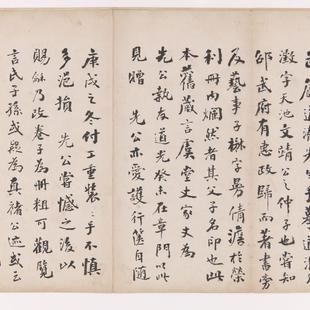 澂字天池文靖公之仲子也嘗知
邵武府有惠政歸而著書旁
及藝事子楙字倩澹於榮
利冊內爛然者其父子名印也此
本舊藏言虞堂丈家丈為
先公執友道光癸未在章門以此
見贈 先公亦愛護行篋自隨
庚戌之冬付工重裝〻手不慎
多浥損 先公嘗憾之後以
賜龢乃改卷子為冊粗可觀覽
言氏子孫或疑為真褚公迹或云